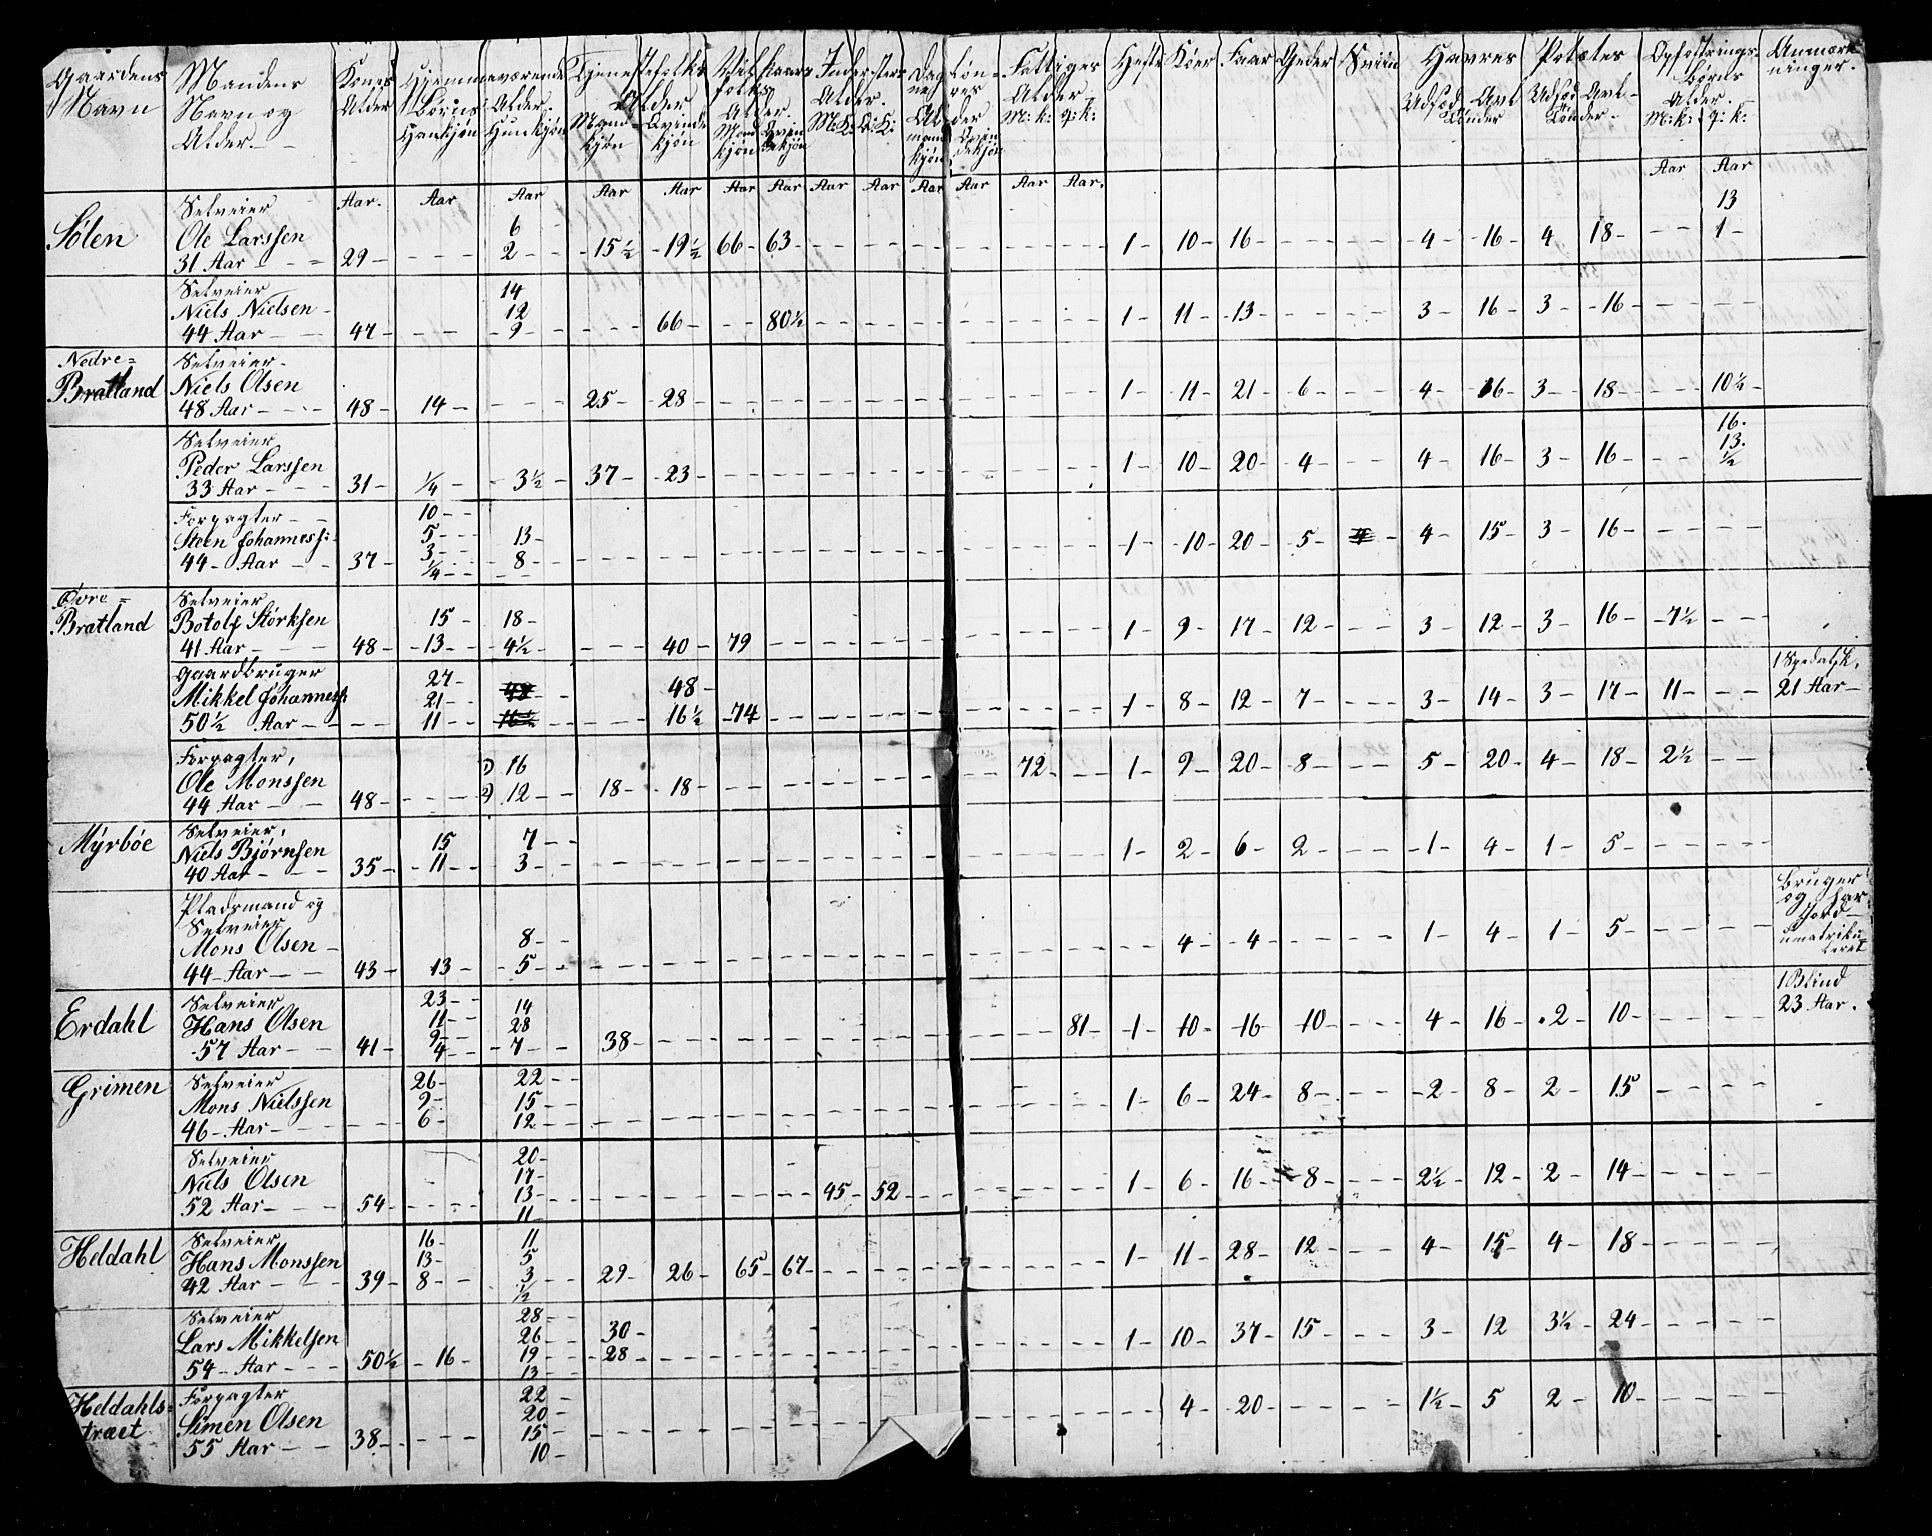 Gaardens Navn | Mandens Navn og Alder. | Konens Alder | Hjemmeværende Børns Alder. Hankjøn | Hunkjøn | Tjenestefolks Alder Mandkjøn | Qvindekjøn | Vilkaarsfolks Alder. Mandkjøn | Qvindekjøn | Indersters Alder. M: K: | Q: K: | Dagløneres Alder Mandkjøn | Qvindekjøn | Fattiges Alder M: k: | q: k: | Heste | Køer | Faar | Geder | Sviin | Havres Udsæd Tønder | Avl | Potetes Udsæd Tønder | Avl | Opfostringsbørns Alder. M: k: | q: k: | Anmærkninger.
Aar. | Aar | Aar | Aar | Aar | Aar | Aar | Aar | Aar | Aar | Aar | Aar | Aar. | Aar | Aar
Sölen | Selveier Ole Larssen 31 Aar | 29 | - | 6 2 | 15½ | 19½ | 66 | 63 | 1 | 10 | 16 | - | - | 4 | 16 | 4 | 18 | - | 13 1
Selveier Niels Nielsen 44 Aar | 47 | - | 14 12 9 | - | 66 | - | 80½ | 1 | 11 | 13 | - | - | 3 | 16 | 3 | 16 | - | -
Nedre= Bratland | Selveier Niels Olsen 48 Aar | 48 | 14 | - | 25 | 28 | - | 1 | 11 | 21 | 6 | - | 4 | 16 | 3 | 18 | - | 10½
Selveier Peder Larssen 33 Aar | 31 | ¼ | 3½ | 37 | 23 | - | 1 | 10 | 20 | 4 | - | 4 | 16 | 3 | 16 | - | 16. 13. ½
Forpagter Steen Johanness: 44 Aar | 37 | 10 5 3 ¼ | 13 8 | - | 1 | 10 | 20 | 5 | 4 | 4 | 15 | 3 | 16 | - | -
Øvre= Bratland | Selveier Botolf Størksen 41 Aar | 48 | 15 13 | 18 4½ | - | 40 | 79 | - | 1 | 9 | 17 | 12 | - | 3 | 12 | 3 | 16 | 7½ | -
Gaardbruger Mikkel Johanness: 50½ Aar | - | 27 21 11 | 48 16½ | - | 48 16½ | 74 | - | 1 | 8 | 12 | 7 | - | 3 | 14 | 3 | 17 | 11 | - | 1 Spedalsk, 21 Aar
Forpagter, Ole Monssen 44 Aar | 48 | - | 1) 16 2) 12 | 18 | 18 | - | 72 | - | 1 | 9 | 20 | 8 | - | 5 | 20 | 4 | 18 | 2½ | -
Mýrböe | Selveier, Niels Bjørnsen 40 Aar | 35 | 15 11 | 7 3 | - | 1 | 2 | 6 | 2 | - | 1 | 4 | 1 | 5 | - | -
Pladsmand og Selveier Mons Olsen 44 Aar | 43 | 13 | 8 5 | - | 4 | 4 | - | - | 1 | 4 | 1 | 5 | - | - | bruger og har Jord umatrikuleret
Erdahl | Selveier Hans Olsen 57 Aar | 41 | 23 11 9 4 | 14 28 7 | 38 | - | 81 | 1 | 10 | 16 | 10 | - | 4 | 16 | 2 | 10 | - | - | 1 Blind 23 Aar.
Grimen | Selveier Mons Nielssen 46 Aar | - | 26 9 6 | 22 15 12 | - | 1 | 6 | 24 | 8 | - | 2 | 8 | 2 | 15 | - | -
Selveier Niels Olsen 52 Aar | 54 | - | 20 17 13 11 | - | 45 | 52 | - | 1 | 6 | 16 | 8 | - | 2½ | 12 | 2 | 14 | - | -
Heldahl | Selveier Hans Monssen 42 Aar | 39 | 16 13 8 | 11 5 3 ½ | 29 | 26 | 65 | 67 | - | 1 | 11 | 28 | 12 | - | 4 | 15 | 4 | 18 | - | -
Selveier Lars Mikkelsen 54 Aar | 50½ | 16 | 28 26 19 13 | 30 28 | - | 1 | 10 | 37 | 15 | - | 3 | 12 | 3½ | 24 | - | -
Heldahls= træet | Forpagter Simen Olsen 55 Aar | 38 | - | 22 20 15 10 | - | 4 | 20 | - | - | 1½ | 5 | 2 | 10 | - | -